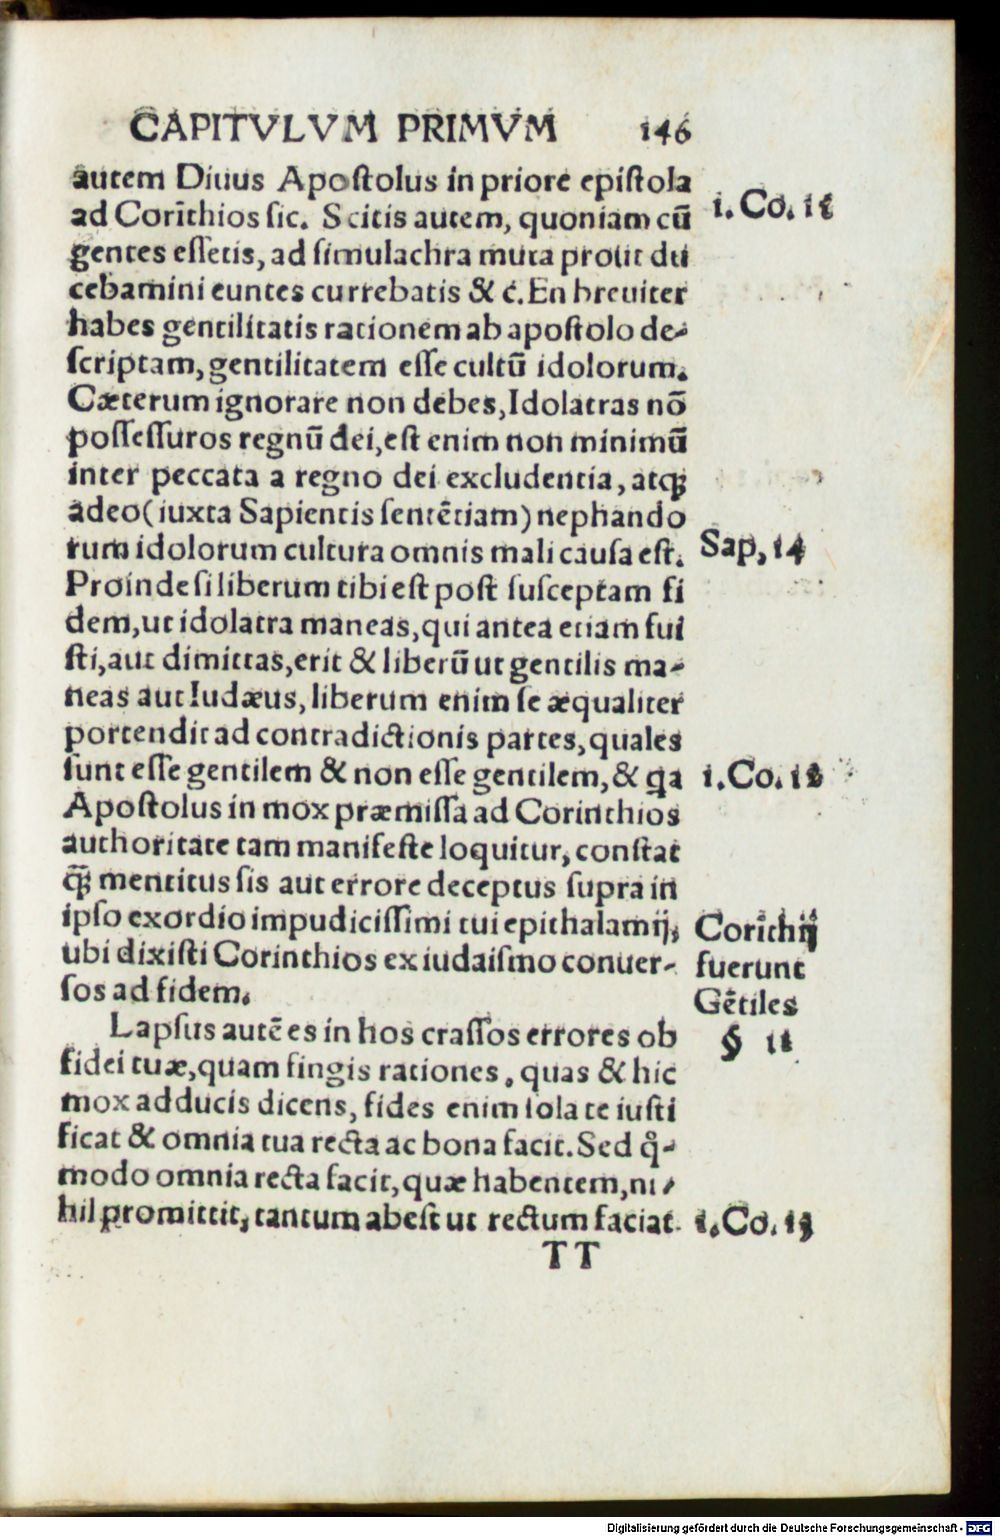 CAPITVLVM PRIMVM 146
autem Diuus Apoſtolus in priore epiſtola
ad Corīthios ſic. Scitis autem, quoniam cū
gentes eſſetis, ad ſimulachra muta prout du
cebamini euntes currebatis & c̄. En breuiter
habes gentilitatis rationem ab apoſtolo de-
ſcriptam, gentilitatem eſſe cultū idolorum.
Cæterum ignorare non debes, Idolatras nō
poſſeſſuros regnū dei, eſt enim non minimū
inter peccata a regno dei excludentia, atqꝫ
adeo (iuxta Sapientis ſentētiam) nephando
rum idolorum cultura omnis mali cauſa eſt.
Proinde ſi liberum tibi eſt poſt ſuſceptam fi
dem, ut idolatra maneas, qui antea etiam fui
ſti, aut dimittas, erit & liberū ut gentilis ma-
neas aut Iudæus, liberum enim ſe æqualiter
portendit ad contradictionis partes, quales
ſunt eſſe gentilem & non eſſe gentilem, & qa
Apoſtolus in mox præmiſſa ad Corinthios
authoritate tam manifeſte loquitur, conſtat
qꝫ̄ mentitus ſis aut errore deceptus ſupra in
ipſo exordio impudiciſſimi tui epithalamij,
ubi dixiſti Corinthios ex iudaiſmo conuer-
ſos ad fidem.
Lapſus autē es in hos craſſos errores ob
fidei tuæ, quam fingis rationes, quas & hic
mox adducis dicens, fides enim ſola te iuſti
ficat & omnia tua recta ac bona facit. Sed q̊-
modo omnia recta facit, quæ habentem, ni-
hil promittit, tantum abeſt ut rectum faciat.
TT
i. Co. 12
Sap, 14
i. Co. 12
Corīthij
fuerunt
Gētiles
§ 11
i. Co. 13
Digitalisierung gefördert durch die Deutsche Forschungsgemeinschaft - DFG